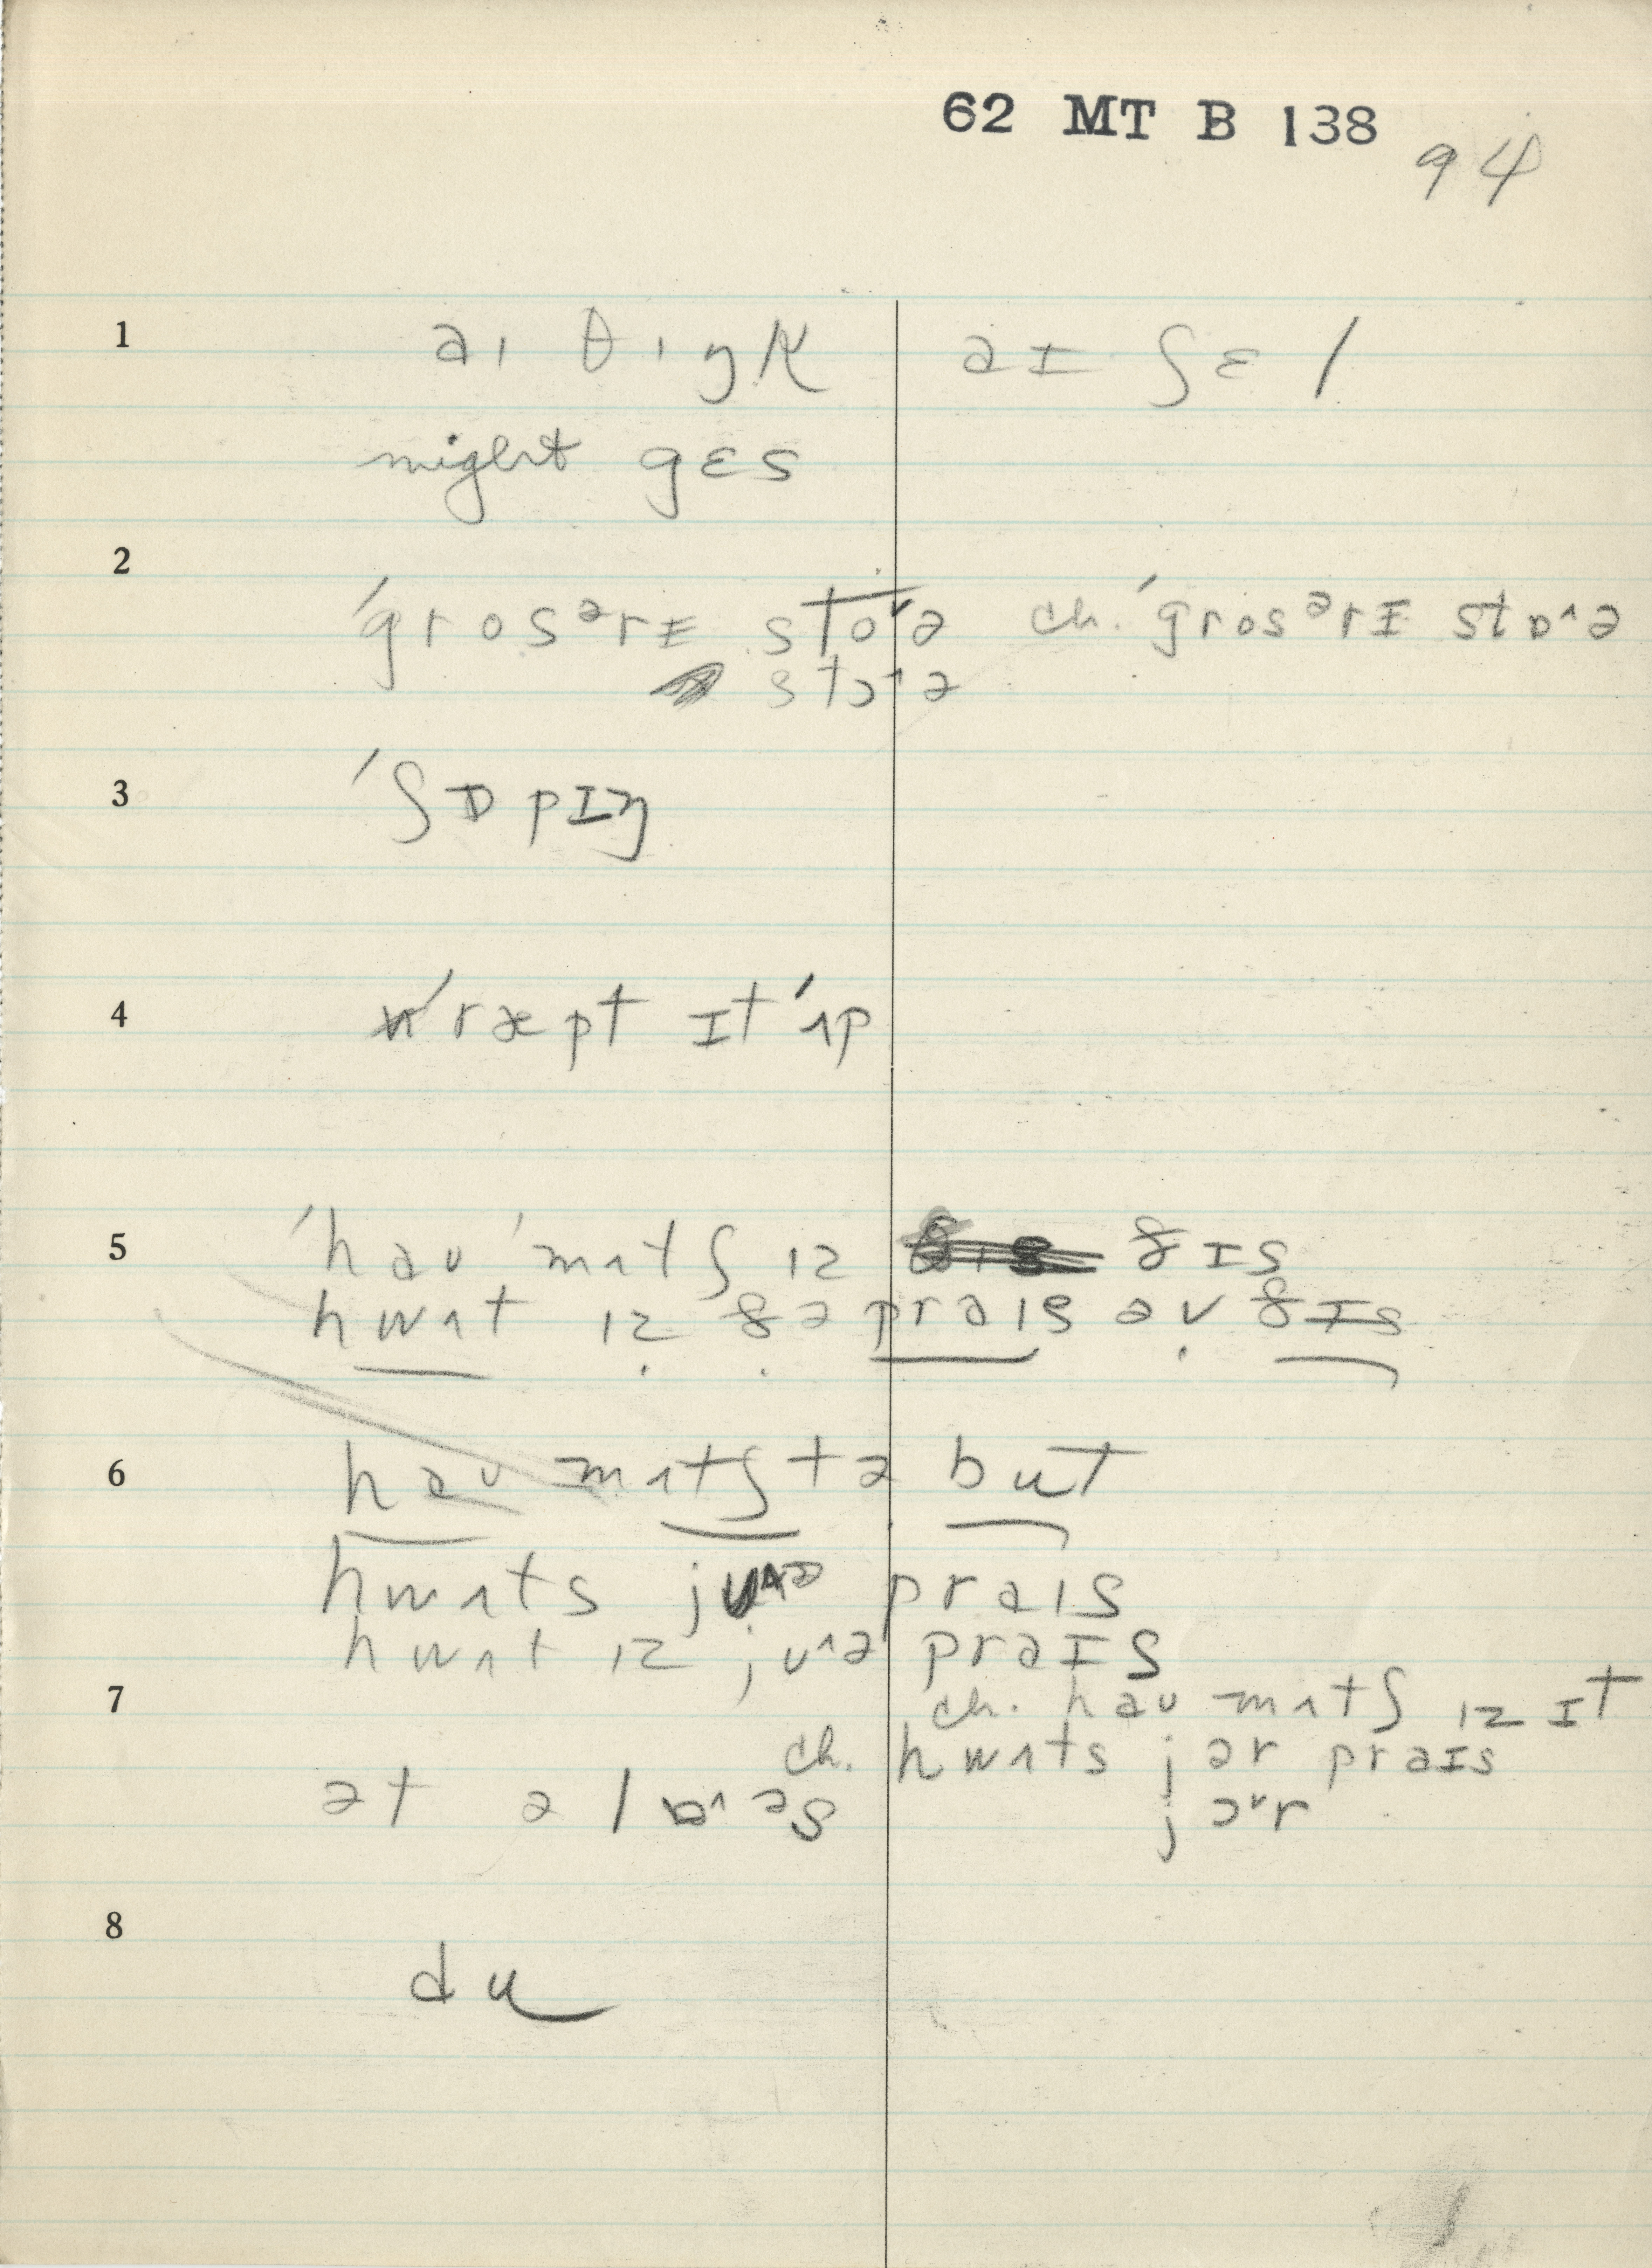 62 MT B 138
94
1 aɪ θɪŋk aɪ ʃɛl
might gɛs
2
ˈgrosᵊrɪ stoˇə ch. ˈgrosᵊrɪ stɒ^ə
stɔ^ə
3 ˈʃɒpɪŋ
4 ˈræpt ɪt ˈʌp
5 ˈhaʊ ˈmʌtʃ ɪz ðɪs
hwʌt ɪz ðə praɪs əv ðɪs
6 haʊ mʌtʃ tə but
hwʌts praɪs
hwʌt ɪz jʊ^ə praɪs
7 ch. haʊ mʌtʃ ɪz ɪt
ch. hwʌts jər praɪs
ət ə l ᵊs jɔˇr
8
du